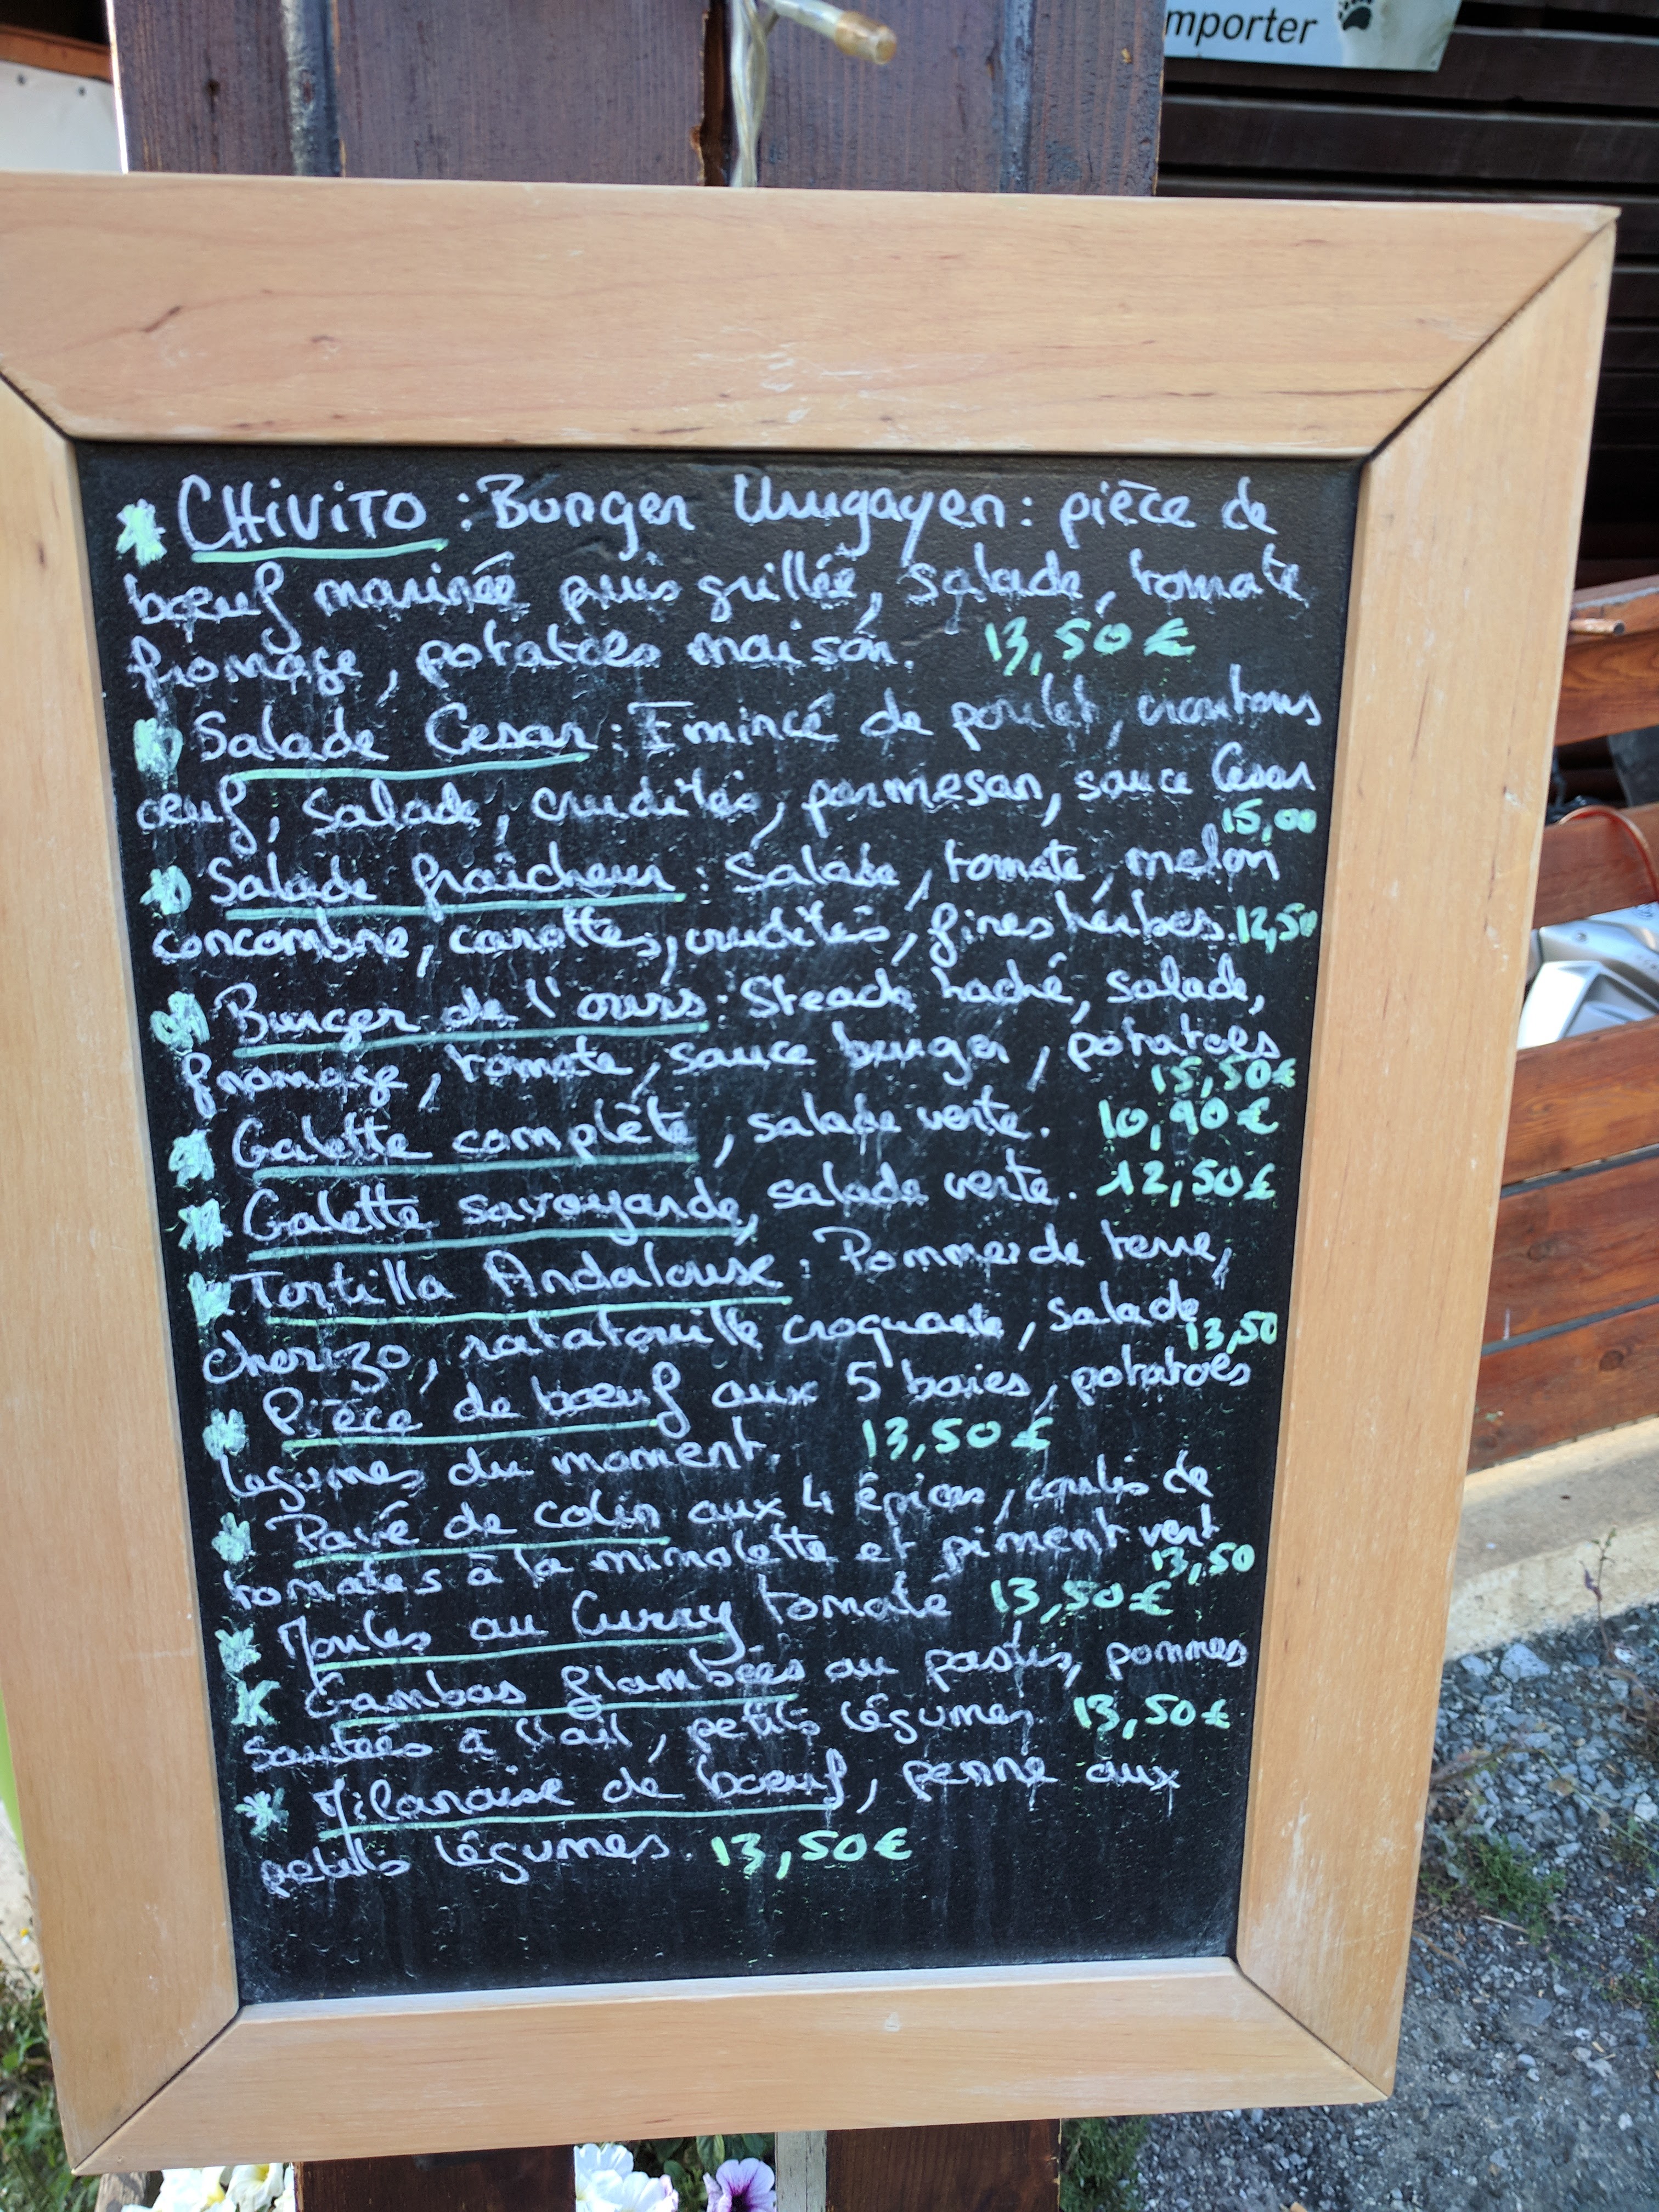 mporter
CHiViTO : Burger Urugayen : pièce de
bœuf marinée puis grillée, salade, tomate
fromage, potatoes maison. 13,50 €
Salade Cesar : Emincé de poulet, croutons
œuf, salade, crudités, parmesan, sauce Cesar
15,00
Salade fraîcheur : Salade, tomate, melon
concombre, carottes, crudités, fines herbes. 12,50
Burger de l'ours : Steack haché, salade,
fromage, tomate, sauce burger, potatoes
15,50€
Galette complète, salade verte. 10,90€
Galette savoyarde, salade verte. 12,50€
Tortilla Andalouse : Pomme de terre,
chorizo, ratatouille croquante, salade
13,50
Pièce de bœuf aux 5 baies, potatoes
légumes du moment. 13,50€
Pavé de colin aux 4 épices, coulis de
tomates à la mimolette et piment vert
13,50
Moules au Curry tomate 13,50€
Gambas flambées au pastis, pommes
sautées à l'ail, petits légumes. 13,50€
Milanaise de bœuf, penne aux
petits légumes. 13,50€